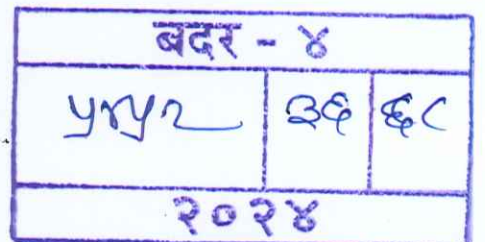 बदर - ४
५४५२ ३६ ६८
२०२४